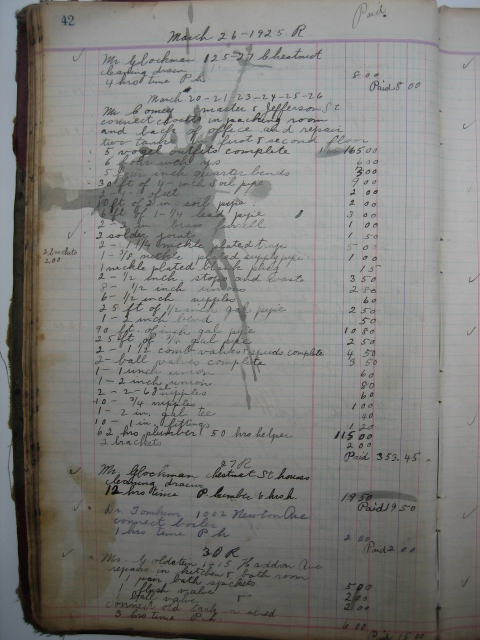 42
March 26-1925 R
Paid
Mr Glockman 125-27 Chestnut
cleaning drain 8 00
4 hrs time P h Paid 8 00
March 20-21-23-24-25-26
Mr Comey master & Jefferson St
connect closets in packing room
and back of office and repair
two tanks first & second floor
5 outfits complete 165 00
6 inch
5 inch quarter bends
30 ft of 4 inch soil pipe 9 00
2 00
10 ft of 2 in. soil pipe 2 00
6 ft of 1-1/4 lead pipe 3 00
2 - 2 in brass 1 00
2 solder joints 1 50
2 brackets
2.00
2 - 1 1/4 nickle plated traps 5 00
1 - 3/8 nickle plated supply pipe 1 00
1 nickle plated plug 15
2 - 1/2 inch stops and waste 3 50
8 - 1/2 inch unions 2 80
6 - 1/2 inch nipples 60
25 ft of 1/2 inch gal pipe 2 50
1 - 2 inch bend 50
90 ft of inch gal pipe 10 80
25 ft of 3/4 gal pipe 2 50
2 - 1 1/2 comb valves & spuds complete 4 50
2 - ball valves complete 3 50
1 - 1 inch union 60
1 - 2 inch union 80
2 - 2-6 nipples 60
10 - 3/4 nipples 1 00
1 - 2 in. gal tee 40
10 - 1 in. fittings 1 20
62 hrs plumber 50 hrs helper 115 00
2 brackets 2 00
Paid 353.45
27 R
Mr Glockman chestnut St house
cleaning drain
12 hrs time Plumber & hrs h 19 50
Paid 19 50
Dr. Tomkins 1002 Newton Ave
connect boiler
1 hrs time P h 2 00
Paid 2 00
30 R
Mr Goldstein 1515 Haddon Ave
repairs in kitchen & bath room
1 pair bath brackets
1 flush valve 5 00
1 ball valve 2 00
connect old tank in shed 2 00
3 hrs time P h 6 00